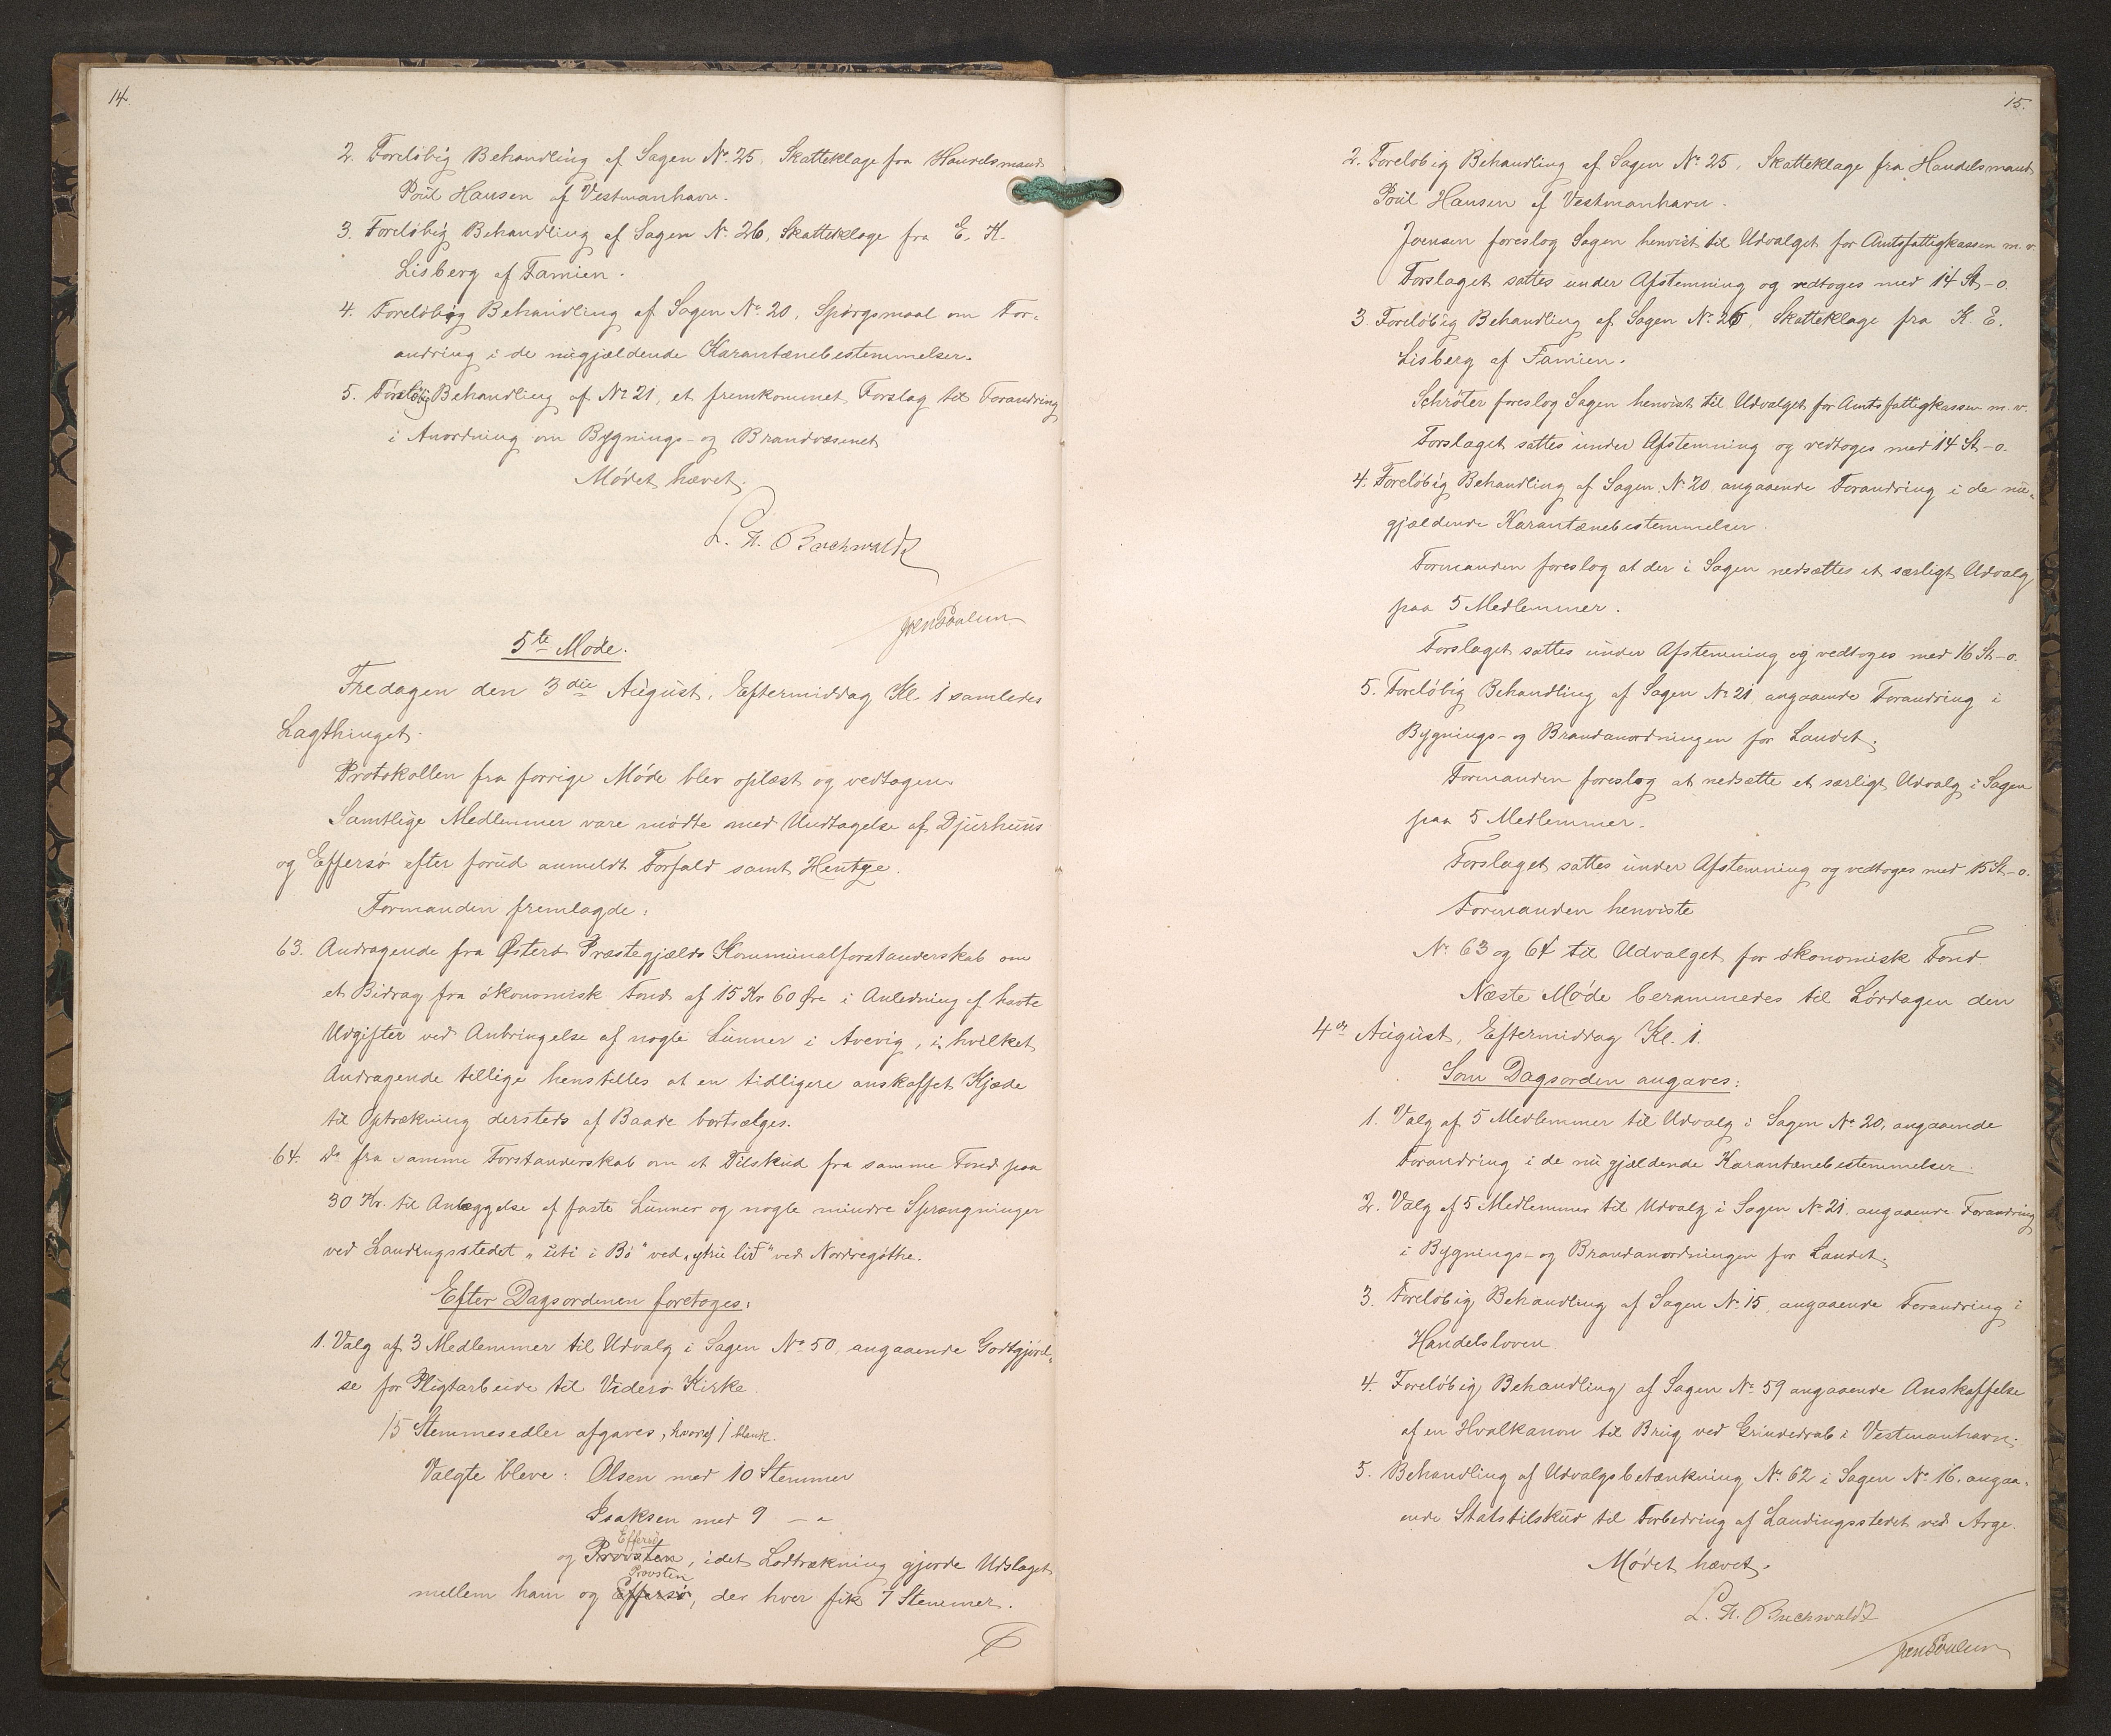 14.
2. Foreløbig Behandling af Sagen No. 25. Skatteklage fra Handelsmand
Poul Hansen af Vestmanhavn.
3. Foreløbig Behandling af Sagen No. 26, Skatteklage fra E. K.
Lisberg af Famien.
4. Foreløbig Behandling af Sagen No. 20, Spørgsmaal om For-
andring i de nugjældende Karantænebestemmelser.
5. Foreløbig Behandling af No 21, et fremkommet Forslag til Forandring
i Anordning om Bygnings- og Brandvæsenet
Mødet hævet.
L. A. Buchwaldt
5te Møde.
Fredagen den 3die August, Eftermiddag Kl. 1 samledes
Lagthinget.
Protokollen fra forrige Møde blev oplæst og vedtagen.
Samtlige Medlemmer vare mødte med Undtagelse af Djurhuus
og Effersø efter forud anmeldt Forfald samt Hentze.
Formanden fremlagde:
63. Andragende fra Østerø Præstegjælds Kommunalforstanderskab om
et Bidrag fra økonomisk Fond af 15 Kr 60 Øre i Anledning af havte
Udgifter ved Anbringelse af nogle Lunner i Avevig, i hvilket
Andragende tillige henstilles at en tidligere anskaffet Kjæde
til Optrækning dersteds af Baade bortsælges.
64. Do fra samme Forstanderskab om et Tilskud fra samme Fond paa
30 Kr. til Anlæggelse af faste Lunner og nogle mindre Sprængninger
ved Landingsstedet „uti i Bø“ ved „ytri lið“ ved Nordregøthe.
Efter Dagsordenen foretoges:
1. Valg af 3 Medlemmer til Udvalg i Sagen No 50, angaaende Godtgjørel-
se for Pligtarbeide til Viderø Kirke.
15 Stemmesedler afgaves, hvoraf 1 blank.
Valgte bleve: Olsen med 10 Stemmer
Isaksen med 9 — "
Effersø
og Provsten, idet Lodtrækning gjorde Udslaget
Provsten
mellem ham og Effersø, der hver fik 7 Stemmer.
15.
2. Foreløbig Behandling af Sagen No. 25, Skatteklage fra Handelsmand
Poul Hansen af Vestmanhavn.
Joensen foreslog Sagen henvist til Udvalget for Amtsfattigkassen m. v.
Forslaget sattes under Afstemning og vedtoges med 14 St-0.
3. Foreløbig Behandling af Sagen No. 26, Skatteklage fra K. E.
Lisberg af Famien.
Schrøter foreslog Sagen henvist til Udvalget for Amtsfattigkassen m. v.
Forslaget sattes under Afstemning og vedtoges med 14 St-0.
4. Foreløbig Behandling af Sagen No 20 angaaende Forandring i de nu-
gjældende Karantænebestemmelser.
Formanden foreslog at der i Sagen nedsættes et særligt Udvalg
paa 5 Medlemmer.
Forslaget sattes under Afstemning og vedtoges med 16 St-0.
5. Foreløbig Behandling af Sagen No 21 angaaende Forandring i
Bygnings- og Brandanordningen for Landet.
Formanden foreslog at nedsætte et særligt Udvalg i Sagen
paa 5 Medlemmer.
Forslaget sattes under Afstemning og vedtoges med 15 St-0.
Formanden henviste
No. 63 og 64 til Udvalget for økonomisk Fond.
Næste Møde berammedes til Lørdagen den
4de August, Eftermiddag Kl. 1.
Som Dagsorden angaves:
1. Valg af 5 Medlemmer til Udvalg i Sagen No. 20, angaaende
Forandring i de nu gjældende Karantænebestemmelser.
2. Valg af 5 Medlemmer til Udvalg i Sagen No 21, angaaende Forandring
i Bygnings- og Brandanordningen for Landet.
3. Foreløbig Behandling af Sagen No 15, angaaende Forandring i
Handelsloven.
4. Foreløbig Behandling af Sagen No. 59 angaaende Anskaffelse
af en Hvalkanon til Brug ved Grindedrab i Vestmanhavn.
5. Behandling af Udvalgsbetænkning No. 62 i Sagen No. 16. angaa-
ende Statstilskud til Forbedring af Landingsstedet ved Arge.
Mødet hævet.
L. A. Buchwaldt